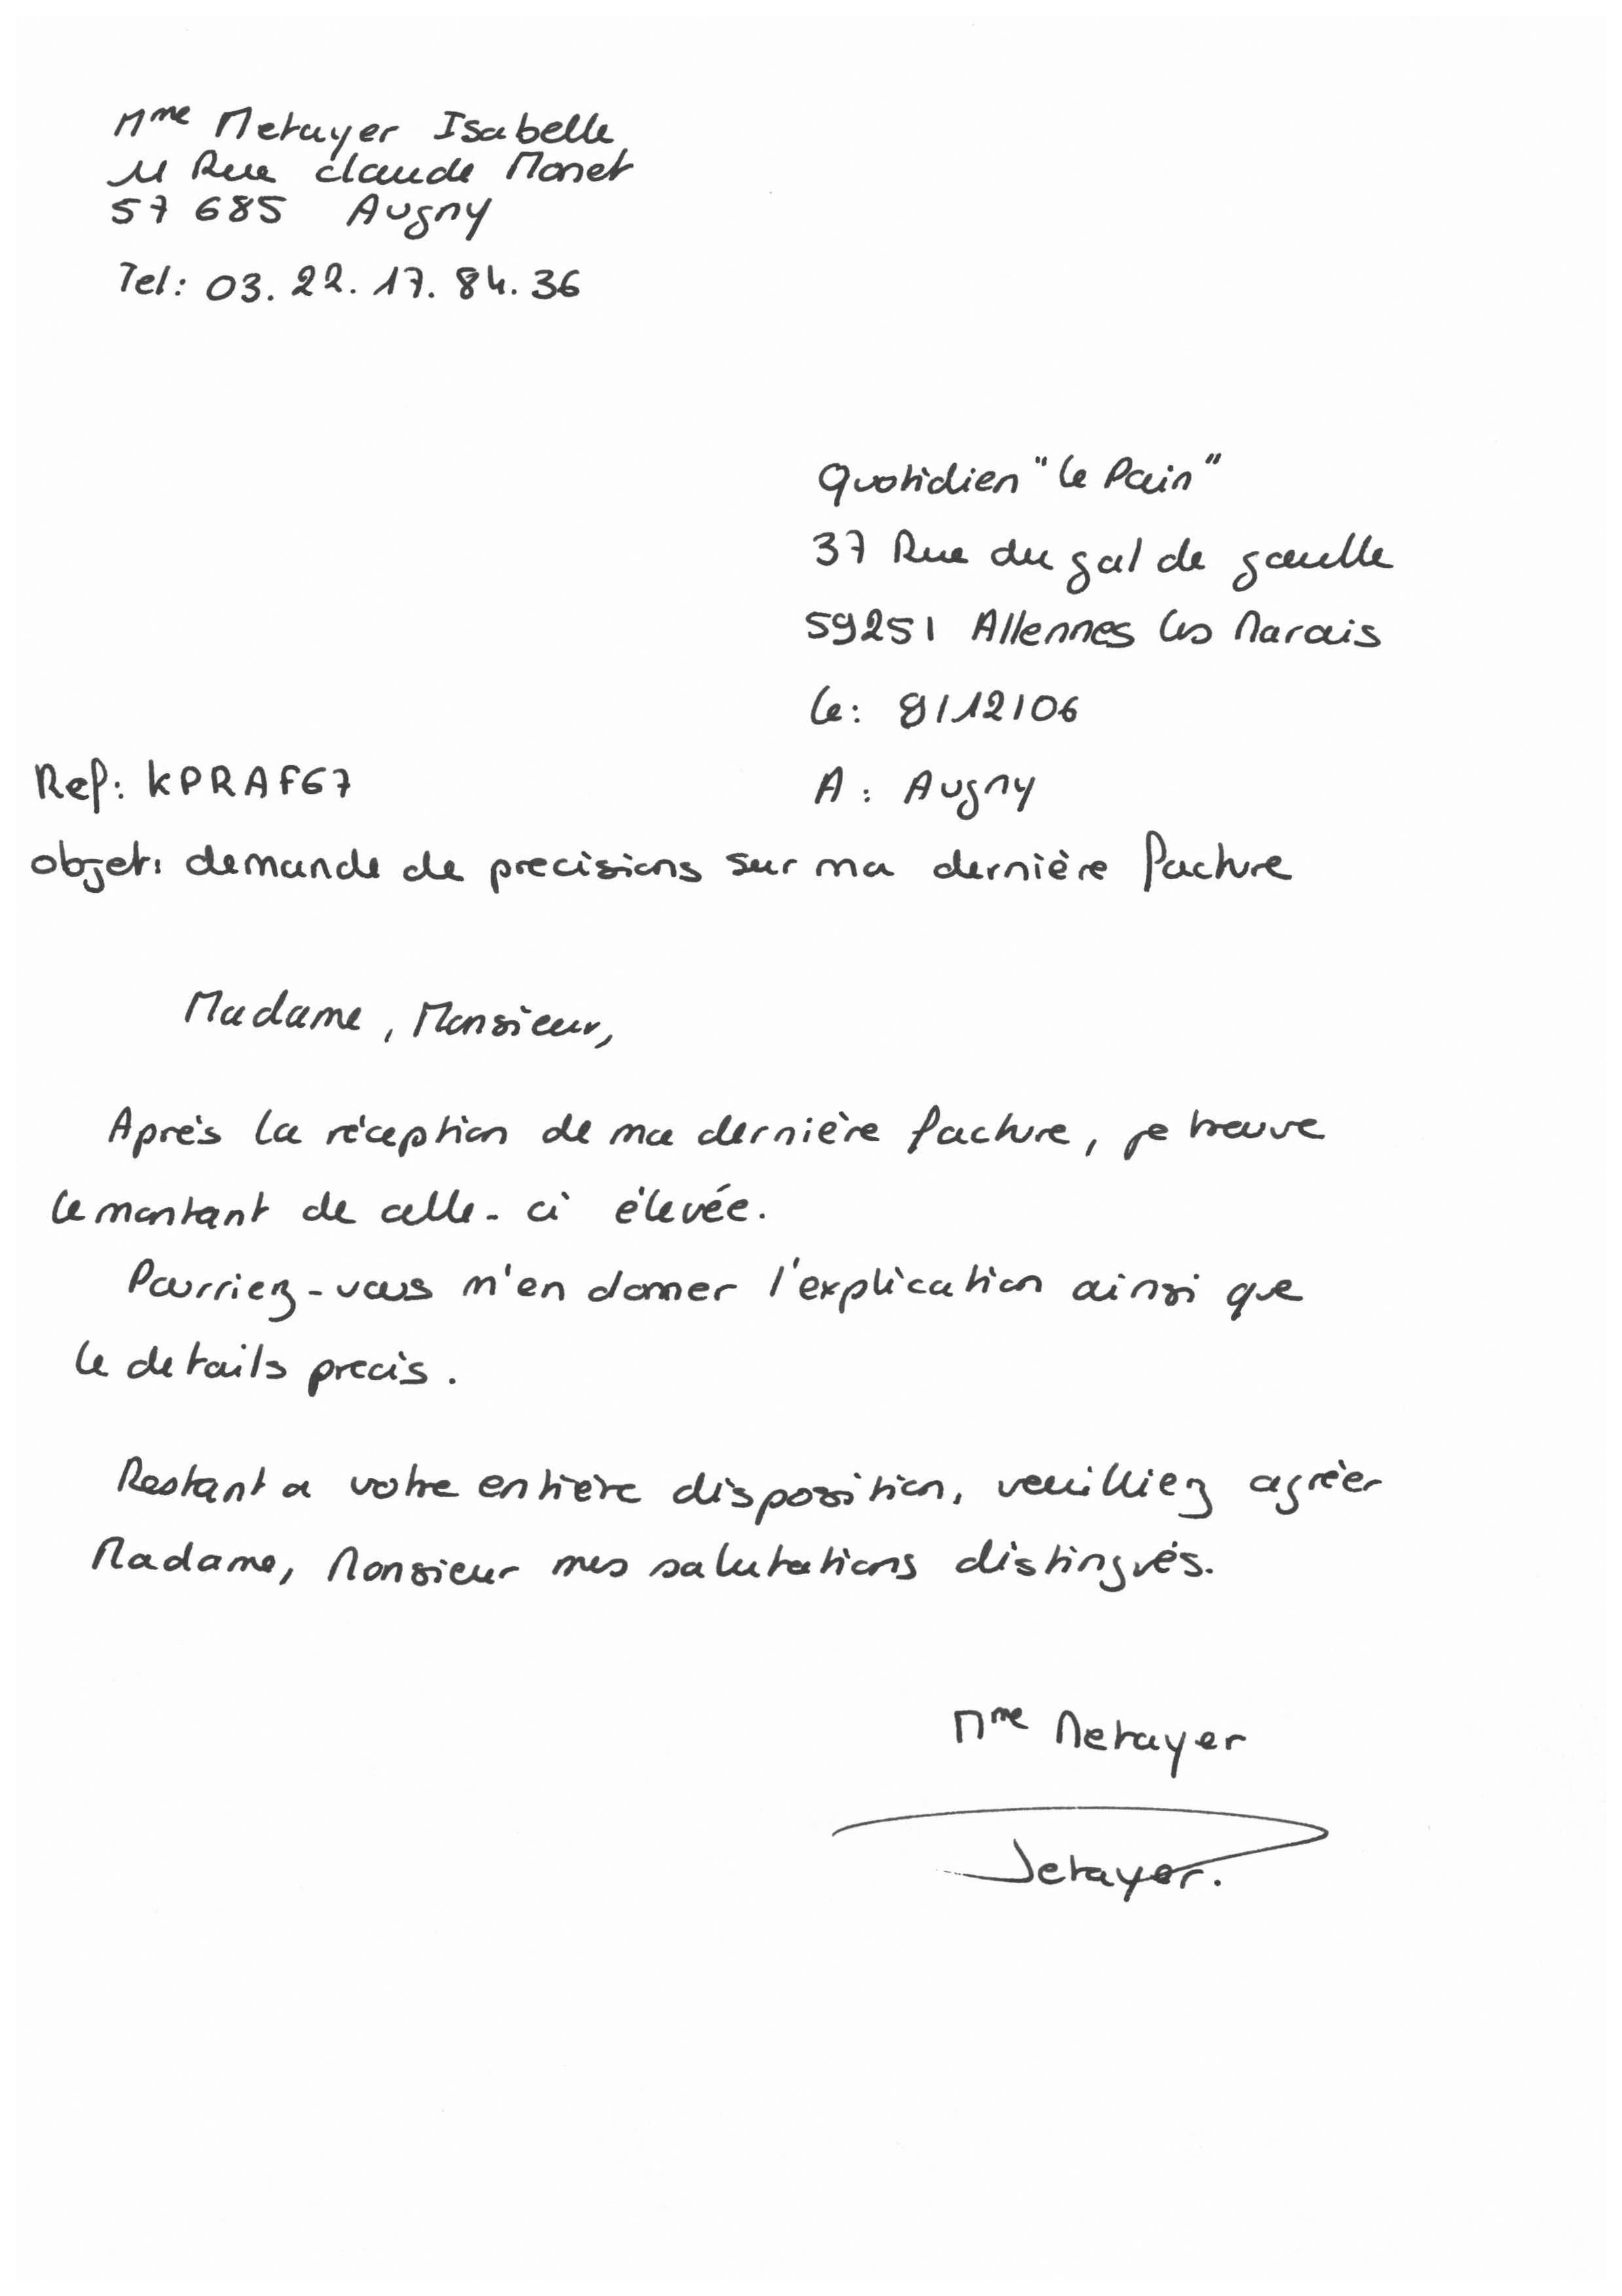 Mme Metayer Isabelle
11 Rue claude Monet
57 685 Augny
Tel: 03. 22. 17. 84. 36
Quotidien "Le Pain"
37 Rue du gal de gaulle
59251 Allennes les Marais
Le: 8/12/06
Ref: KPRAF67
A: Augny
objet: demande de precisions sur ma dernière facture
Madame, Monsieur,
Après la réception de ma dernière facture, je trouve
le montant de celle-ci élevée.
Pourriez-vous m'en donner l'explication ainsi que
le details precis.
Restant a votre entière disposition, veuilliez agréer
Madame, Monsieur mes salutations distingués.
Mme Metayer
Metayer.